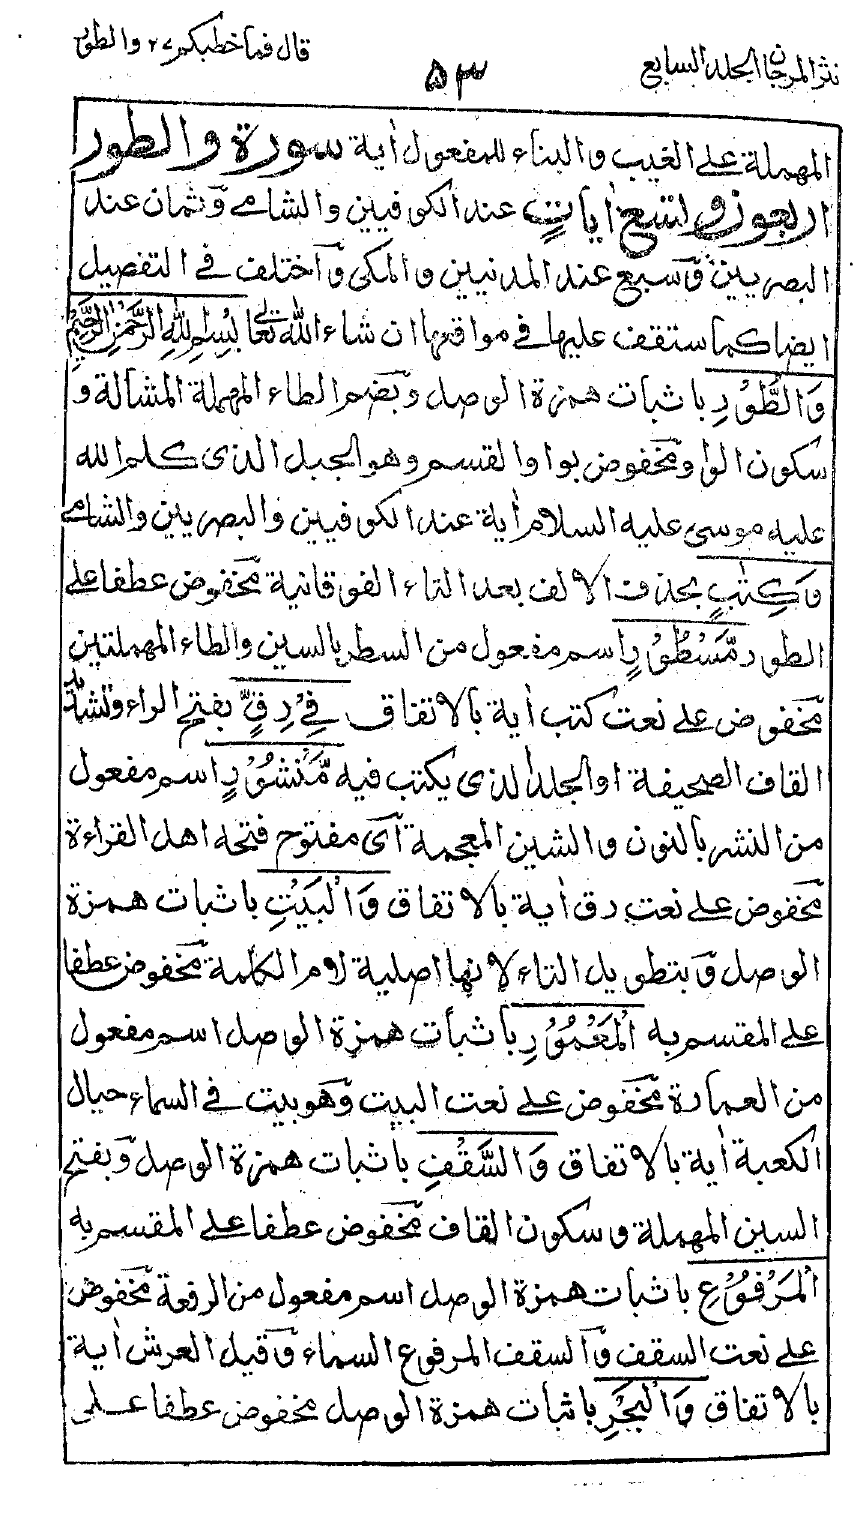 نثر المرجان الجلد السابع
٥٣
قال فما خطبكم ٢٧ والطور
المهملة على الغيب والبناء للمفعول اٰية سورة والطور
اربعون وتسع اٰيات عند الكوفيين والشامے وثمان عند
البصريين وسبع عند المدنيين والمكى واختلف فے التفصيل
ايضا كما ستقف عليها فے مواقعها ان شاء الله تعالى بِسْمِ اللهِ الرَّحْمٰنِ الرَّحِيْمِ
وَالطُّوْرِ باثبات همزة الوصل وبضم الطاء المهملة المشالة و
سكون الواو ومخفوض بواو القسم وهو الجبل الذى كلم الله
عليه موسى عليه السلام اٰية عند الكوفيين والبصريين والشامے
وَكِتٰبٍ بحذف الالف بعد التاء الفوقانية مخفوض عطفا على
الطور مَّسْطُوْرٍ اسم مفعول من السطر بالسين والطاء المهملتين
مخفوض على نعت كتب اٰية بالاتفاق فِےْ رَقٍّ بفتح الراء وتشديد
القاف الصحيفة او الجلد الذى يكتب فيه مَّنْشُوْرٍ اسم مفعول
من النشر بالنون والشين المعجمة اى مفتوح فتحه اهل القراءة
مخفوض على نعت رق اٰية بالاتفاق وَالْبَيْتِ باثبات همزة
الوصل وبتطويل التاء لانها اصلية لام الكلمة مخفوض عطفا
على المقسم به الْمَعْمُوْرِ باثبات همزة الوصل اسم مفعول
من العمارة مخفوض على نعت البيت وهو بيت فے السماء حيال
الكعبة اٰية بالاتفاق وَالسَّقْفِ باثبات همزة الوصل وبفتح
السين المهملة وسكون القاف مخفوض عطفا على المقسم به
الْمَرْفُوْعِ باثبات همزة الوصل اسم مفعول من الرفعة مخفوض
على نعت السقف والسقف المرفوع السماء وقيل العرش اٰية
بالاتفاق وَالْبَحْرِ باثبات همزة الوصل مخفوض عطفا على